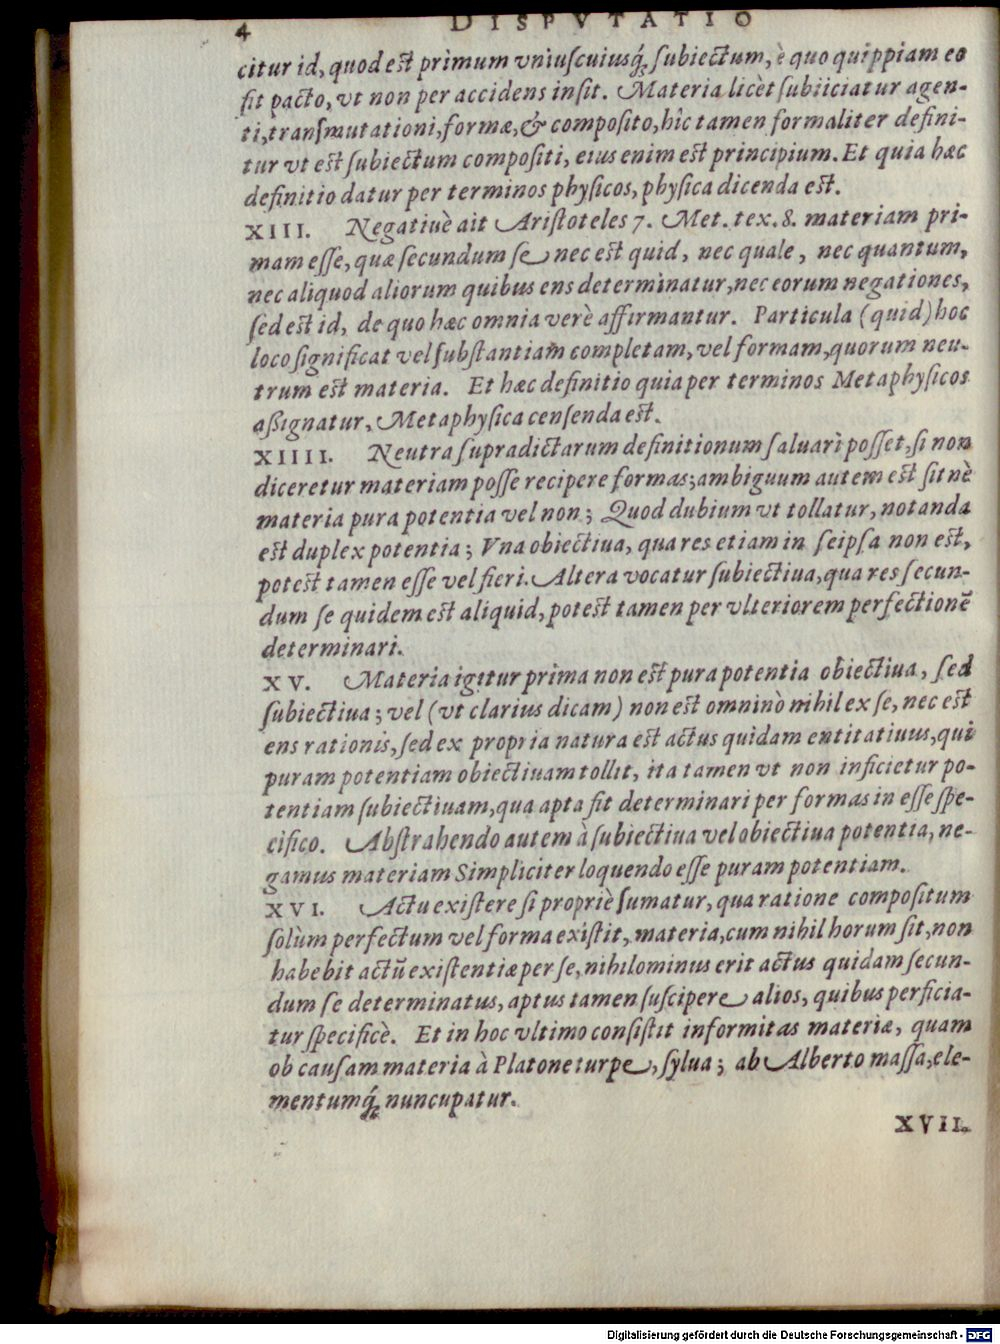 4 DISPVTATIO
citur id, quod est primum vniuſcuiuſq́; ſubiectum, è quo quippiam eo
fit pacto, vt non per accidens inſit. Materia licèt ſubiiciatur agen-
ti, tranſmutationi, formæ, & compoſito, hîc tamen formaliter defini-
tur vt est ſubiectum compoſiti, eius enim est principium. Et quia hæc
definitio datur per terminos phyſicos, phyſica dicenda est.
XIII. Negatiuè ait Ariſtoteles 7. Met. tex. 8. materiam pri-
mam eſſe, quæ ſecundum ſe nec est quid, nec quale, nec quantum,
nec aliquod aliorum quibus ens determinatur, nec eorum negationes,
ſed est id, de quo hæc omnia verè affirmantur. Particula (quid) hoc
loco ſignificat vel ſubſtantiam completam, vel formam, quorum neu-
trum est materia. Et hæc definitio quia per terminos Metaphyſicos
aßignatur, Metaphyſica cenſenda est.
XIIII. Neutra ſupradictarum definitionum ſaluari poſſet, ſi non
diceretur materiam poſſe recipere formas; ambiguum autem est ſit nè
materia pura potentia vel non; Quod dubium vt tollatur, notanda
est duplex potentia; Vna obiectiua, qua res etiam in ſeipſa non est,
potest tamen eſſe vel fieri. Altera vocatur ſubiectiua, qua res ſecun-
dum ſe quidem est aliquid, potest tamen per vlteriorem perfectionē
determinari.
XV. Materia igitur prima non est pura potentia obiectiua, ſed
ſubiectiua; vel (vt clarius dicam) non est omninò nihil ex ſe, nec est
ens rationis, ſed ex propria natura est actus quidam entitatiuus, qui
puram potentiam obiectiuam tollit, ita tamen vt non inficietur po-
tentiam ſubiectiuam, qua apta ſit determinari per formas in eſſe ſpe-
cifico. Abſtrahendo autem à ſubiectiua vel obiectiua potentia, ne-
gamus materiam Simpliciter loquendo eſſe puram potentiam.
XVI. Actu exiſtere ſi propriè ſumatur, qua ratione compoſitum
ſolùm perfectum vel forma exiſtit, materia, cum nihil horum ſit, non
habebit actũ exiſtentiæ per ſe, nihilominus erit actus quidam ſecun-
dum ſe determinatus, aptus tamen ſuſcipere alios, quibus perficia-
tur ſpecificè. Et in hoc vltimo conſiſtit informitas materiæ, quam
ob cauſam materia à Platone turpe, ſylua; ab Alberto maſſa, ele-
mentumq́; nuncupatur.
XVII.
Digitalisierung gefördert durch die Deutsche Forschungsgemeinschaft - DFG